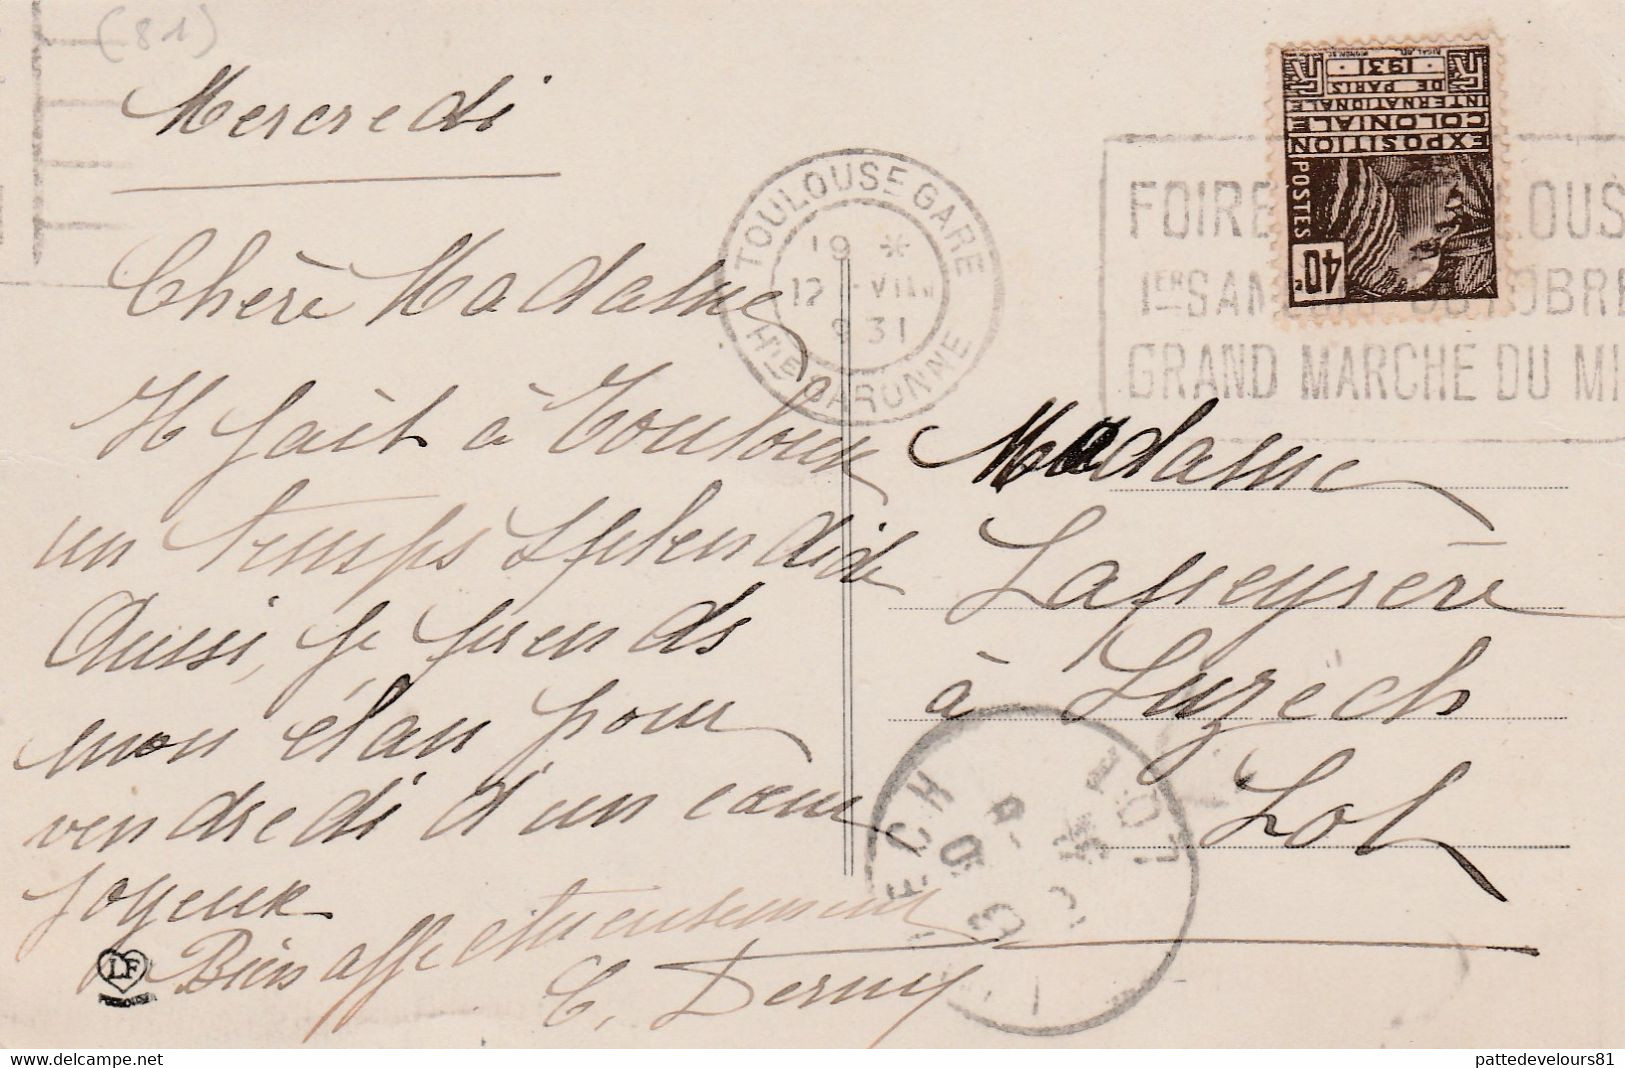 (81)
Mercredi
Chère Madame
Il fait à Toulouse
un temps splendide
Aussi, je prends
mon élan pour
vendredi d'un cœur
joyeux
Bien affectueusement
C. Derny
LF
TOULOUSE GARE
19 *
12 VIII
31
Hte GARONNE
EXPOSITION
COLONIALE
INTERNATIONALE
DE PARIS
1931
POSTES
40c
FOIRE OUS
1ER SAM OCTOBRE
GRAND MARCHE DU MI
Madame
Lapeyrère
à Luzech
Lot
ECH
LOT
pattedevelours81